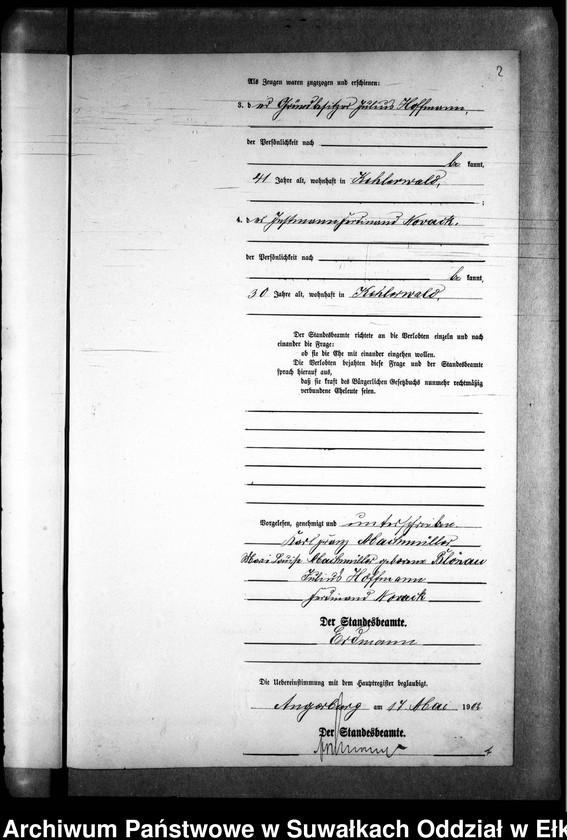 2
Als Zeugen waren zugezogen und erschienen:
3. der Grundbesitzer Julius Hoffmann,
der Persönlichkeit nach
be kannt,
41 Jahre alt, wohnhaft in Kehlerwald,
;
4. der Instmann Ferdinand Novack.
der Persönlichkeit nach
be kannt,
30 Jahre alt, wohnhaft in Kehlerwald.
Der Standesbeamte richtete an die Verlobten einzeln und nach
einander die Frage:
ob sie die Ehe mit einander eingehen wollen.
Die Verlobten bejahten diese Frage und der Standesbeamte
sprach hierauf aus,
daß sie kraft des Bürgerlichen Gesetzbuchs nunmehr rechtmäßig
verbundene Eheleute seien.
Vorgelesen, genehmigt und unterschrieben
Karl Franz Machmüller
Louise Machmüller geborene Blonau
Julius Hoffmann
Ferdinand Novack
Der Standesbeamte.
Erdmann
Die Uebereinstimmung mit dem Hauptregister beglaubigt.
Angerburg am 17 Mai 1906
Der Standesbeamte.
Erdmann
Archiwum Państwowe w Suwałkach Oddział w Ełk